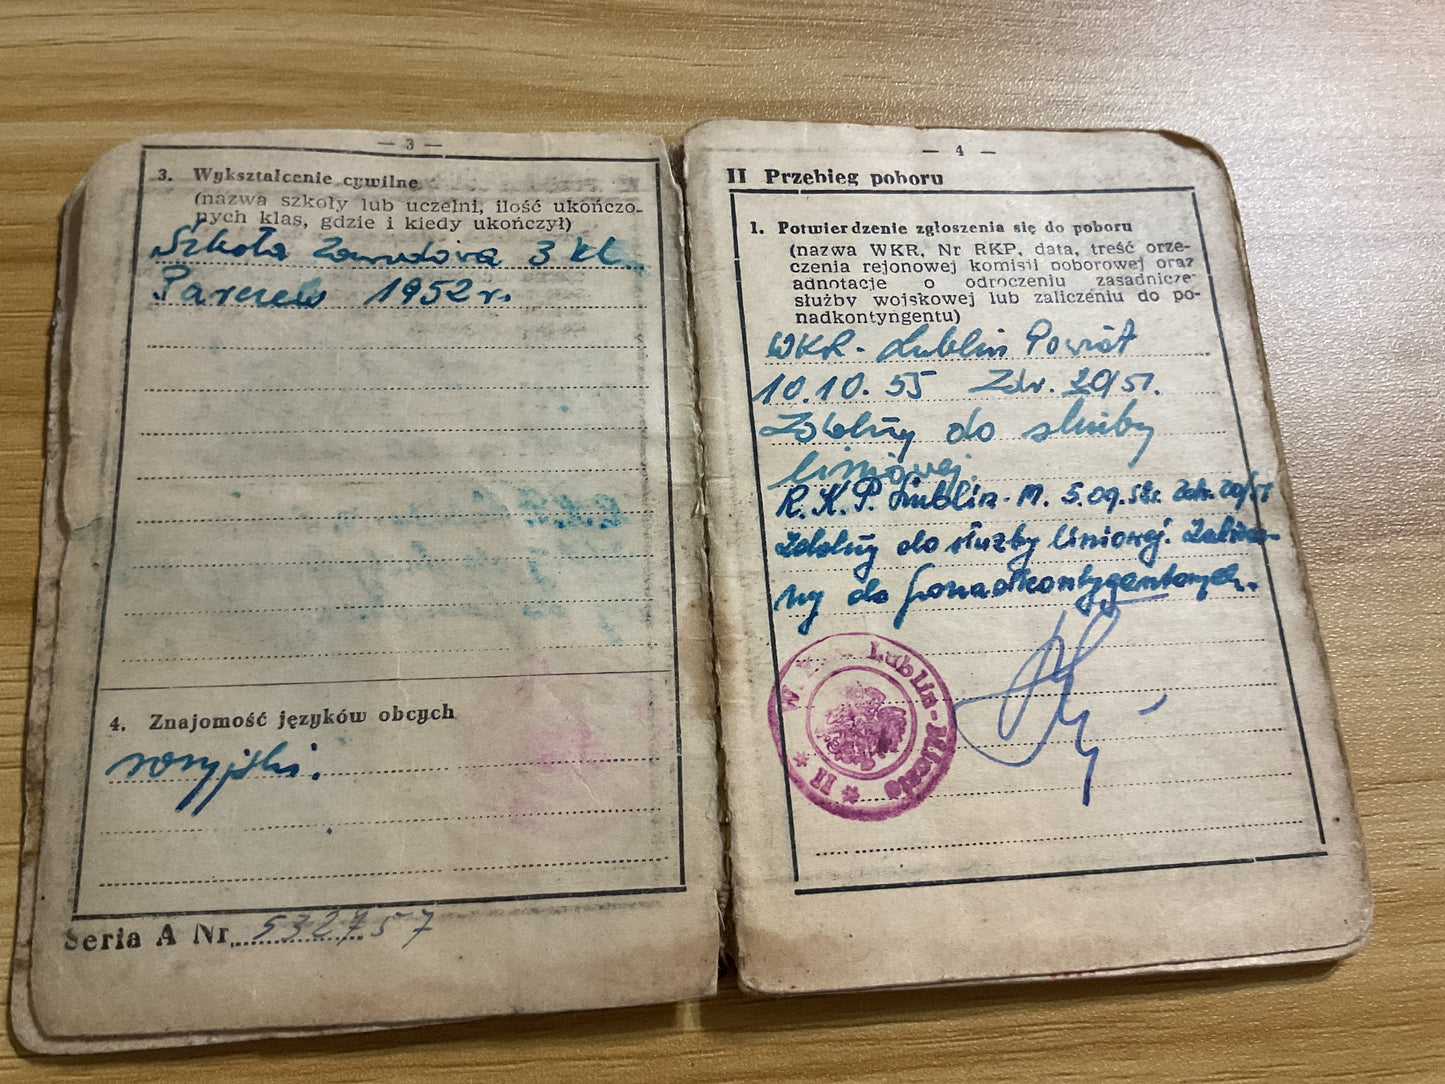 — 3 —
3. Wykształcenie cywilne
(nazwa szkoły lub uczelni, ilość ukończo-
nych klas, gdzie i kiedy ukończył)
Szkoła Zawodowa 3 kl.
Parczew 1952 r.
4. Znajomość języków obcych
rosyjski.
Seria A Nr 532757
— 4 —
II Przebieg poboru
1. Potwierdzenie zgłoszenia się do poboru
(nazwa WKR, Nr RKP, data, treść orze-
czenia rejonowej komisji poborowej oraz
adnotacje o odroczeniu zasadniczej
służby wojskowej lub zaliczeniu do po-
nadkontyngentu)
WKR - Lublin Powiat
10.10.55 Zdr. 20/51.
Zdolny do służby
liniowej.
R.K.P. Lublin - M. 5.09.58r. Zdr. 20/51
Zdolny do służby liniowej. Zalicza-
ny do ponadkontygentowych.
W. Lublin-Miasto * II *